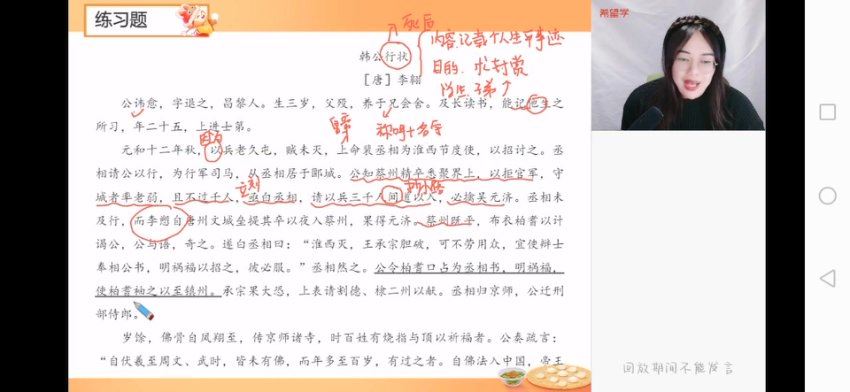 练习题
希望学
死后
韩公行状
内容:记载个人生平事迹
[唐]李翱
目的:求封赏
公讳愈，字退之，昌黎人。生三岁，父殁，养于兄会舍。及长读书，能记他生之
所习，年二十五，上进士第。
皇帝
称呼+名字
因为
元和十二年秋，以兵老久屯，贼未灭，上命裴丞相为淮西节度使，以招讨之。丞
相请公以行，为行军司马，从丞相居于郾城。公知蔡州精卒悉聚界上，以拒官军，守
立刻
城者率老弱，且不过千人，亟白丞相，请以兵三千人间道以入，必擒吴元济。丞相未
及行，而李愬自唐州文城垒提其卒以夜入蔡州，果得元济。蔡州既平，布衣柏耆以计
谒公，公与语，奇之。遂白丞相曰：“淮西灭，王承宗胆破，可不劳用众，宜使辩士
奉相公书，明祸福以招之，彼必服。”丞相然之。公令柏耆口占为丞相书，明祸福，
使柏耆袖之以至镇州。承宗果大恐，上表请割德、棣二州以献。丞相归京师，公迁刑
部侍郎。
岁馀，佛骨自凤翔至，传京师诸寺，时百姓有烧指与顶以祈福者。公奏疏言：
“自伏羲至周文、武时，皆未有佛，而年多至百岁，有过之者。自佛法入中国，帝王
回放期间不能发言